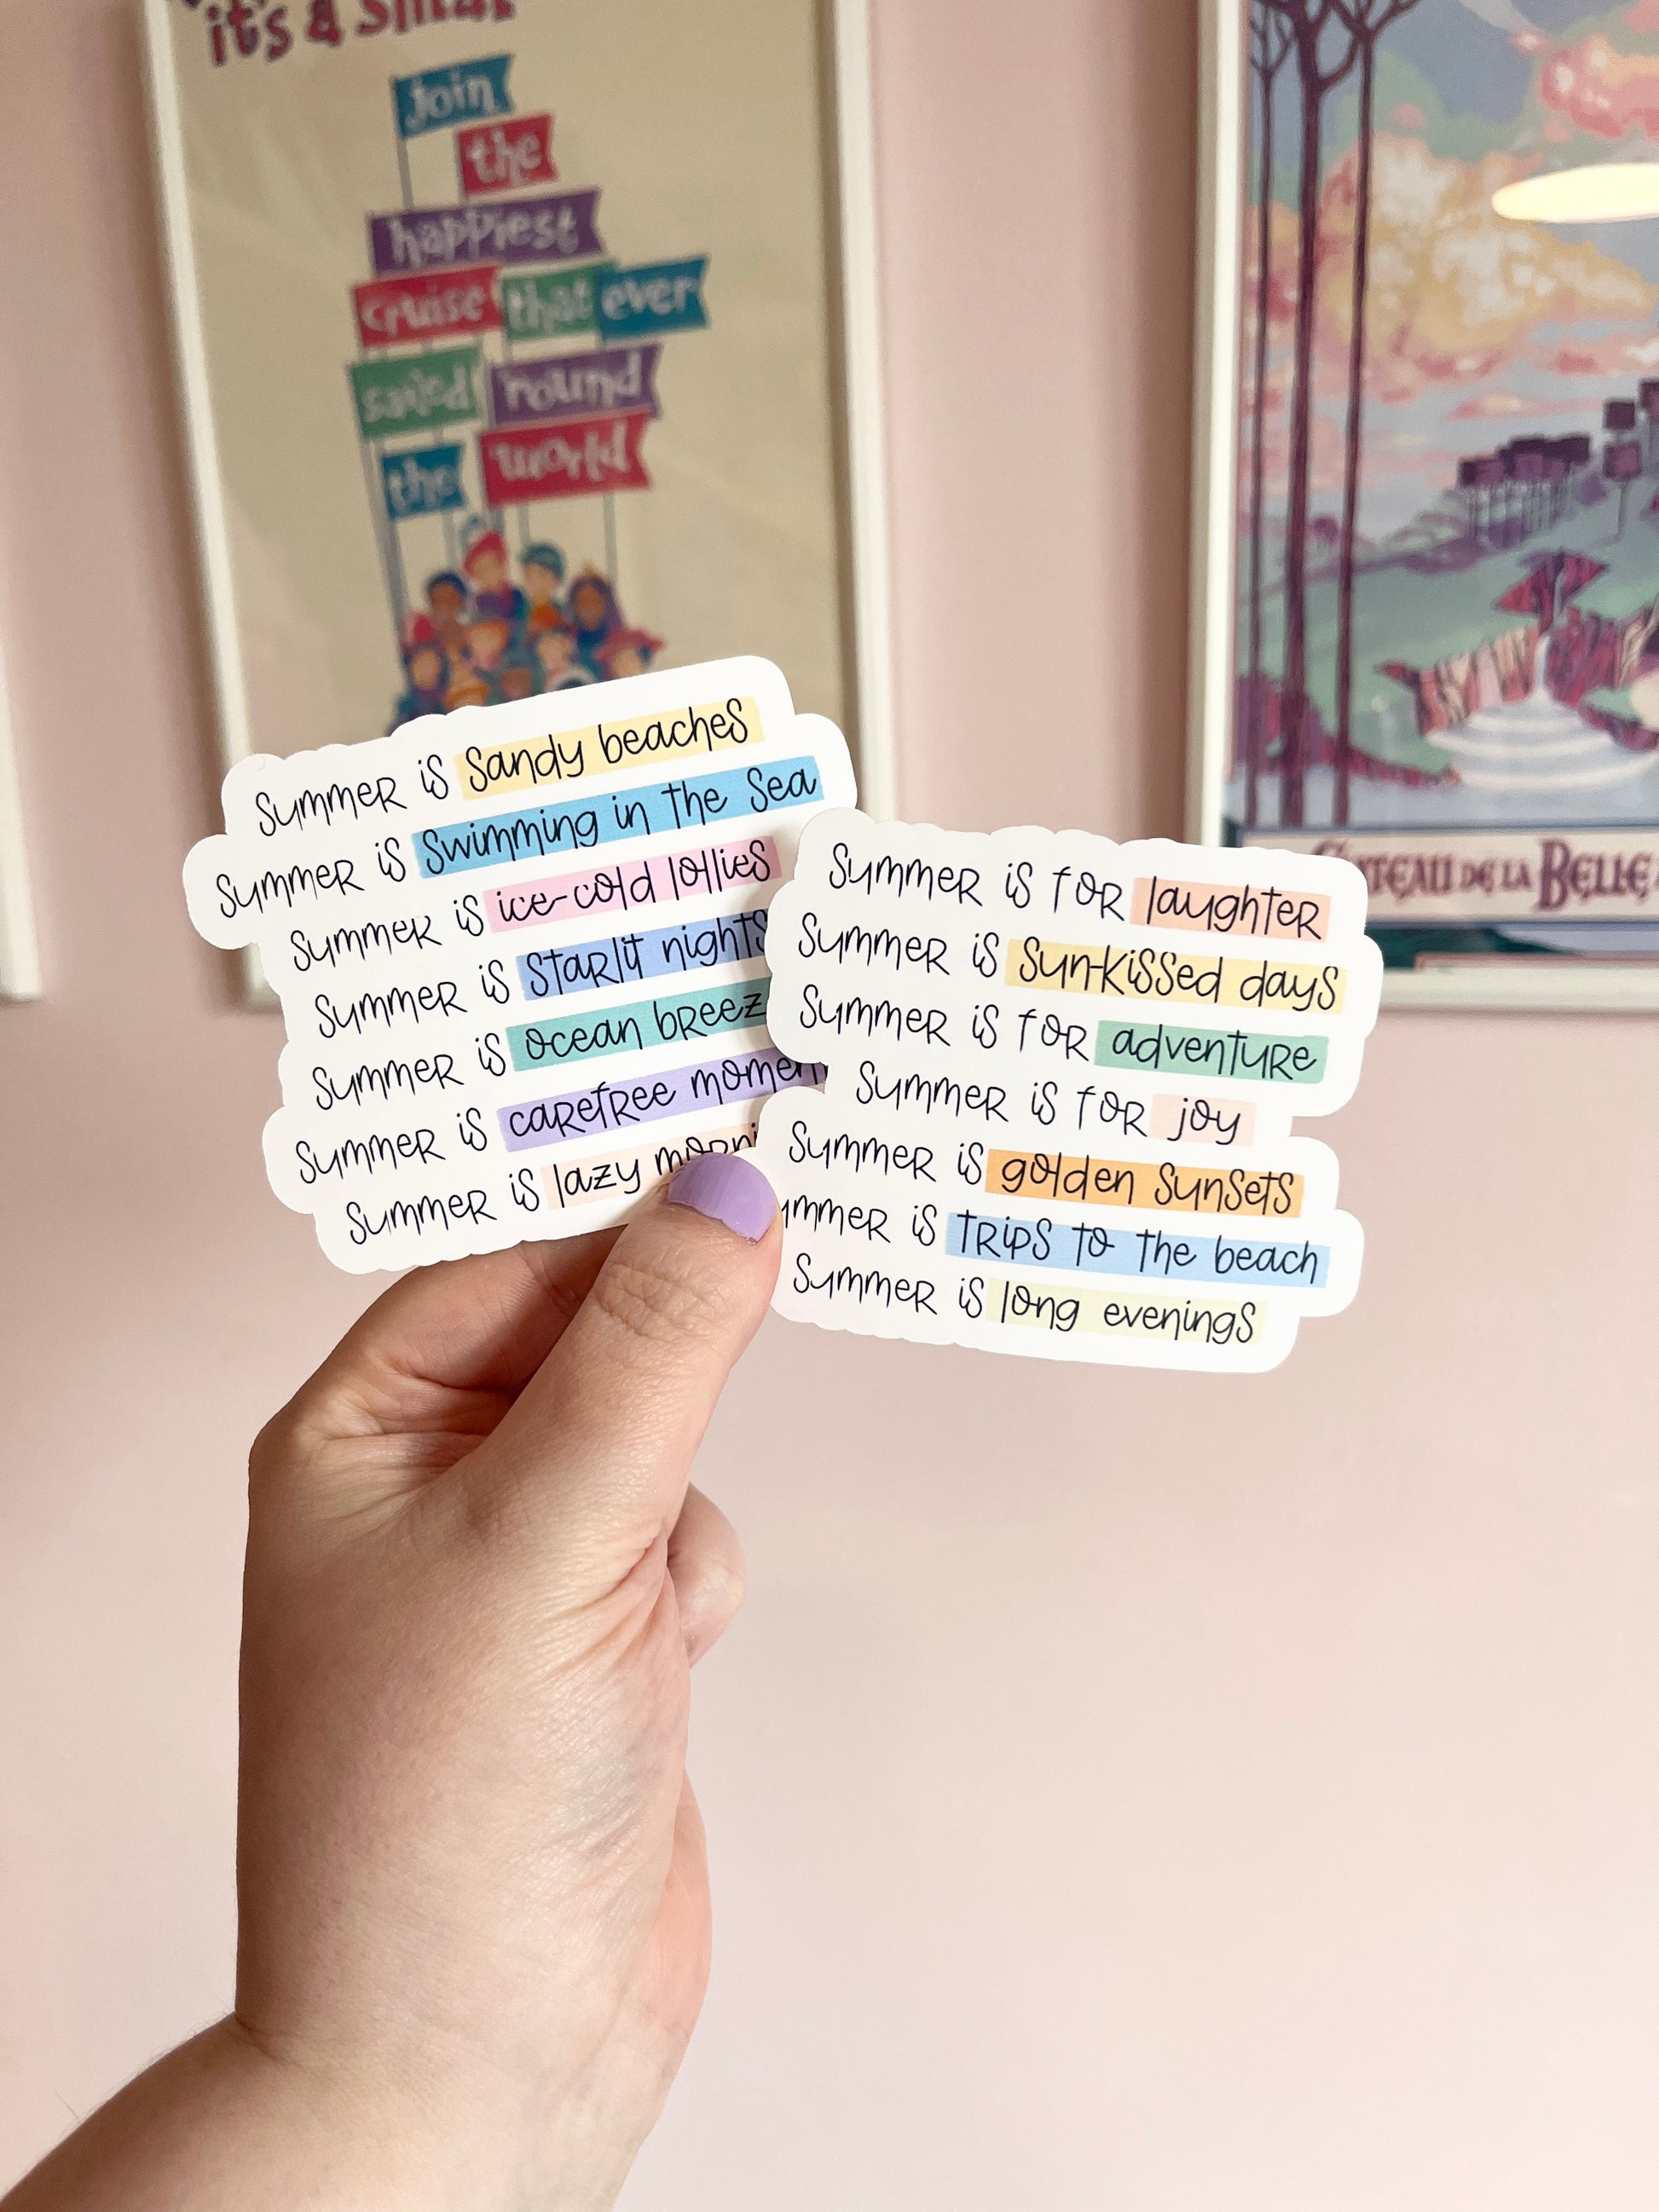 it's a small
Join
the
happiest
cruise that ever
sailed 'round
the world
Summer is Sandy beaches
Summer is Swimming in the Sea
Summer is ice-cold lollies
Summer is Starlit nights
Summer is ocean breez
Summer is carefree momen
Summer is lazy morni
Summer is for laughter
Summer is Sun-kissed days
Summer is for adventure
Summer is for joy
Summer is golden Sunsets
ummer is trips to the beach
Summer is long evenings
DE LA BELLE